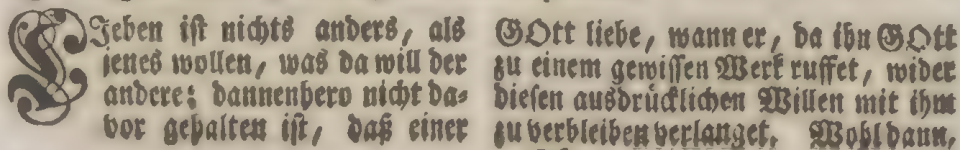 LIeben ist nichts anders, als
jenes wollen, was da will der
andere: dannenhero nicht das
vor gehalten ist, daß einer
GOtt liebe, wann er, da ihn GOtt
zu einem gewissen Werk ruffet, wider
diesen ausdrücklichen Willen mit ihm
zu verbleiben verlanget. Wohl dann,